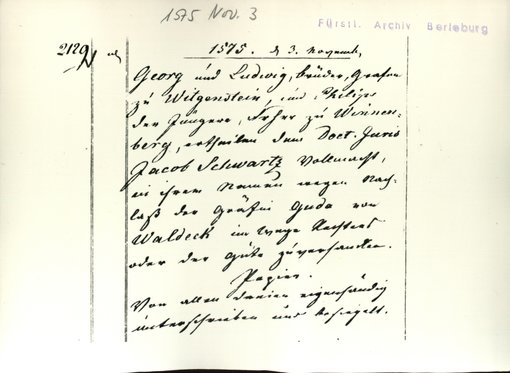 1575 Nov. 3
Fürstl. Archiv Berleburg
2129
1575. d 3. Novemb.
Georg und Ludwig, Brüder, Grafen
zu Witgenstein, und Philips
der Jüngere, Frhr zu Winnen-
berg, ertheilen dem Doct. Juris
Jacob Schwartz Vollmacht,
in ihrem Namen wegen Nach-
laß der Gräfin Guda von
Waldeck im Wege Rechtens
oder der Güte zu verhandlen.
Papier.
Von allen dreien eigenhändig
unterschrieben und besiegelt.